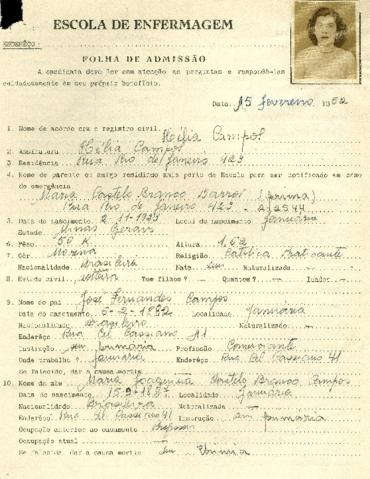 ESCOLA DE ENFERMAGEM
ENDERÊÇO:
FOLHA DE ADMISSÃO
A candidata deve ler com atenção as perguntas e respondê-las
cuidadosamente em seu próprio benefício.
Data: 15 fevereiro 1952
1. Nome de acôrdo com o registro civil: Hélia Campos
2. Assinatura Hélia Campos
3. Residência Rua Rio de Janeiro 423
4. Nome de parente ou amigo residindo mais perto da Escola para ser notificado em caso
de emergência
Maria Castelo Branco Barros (prima)
Rua Rio de Janeiro 423 -
5. Data do nascimento 2-11-1933 Local do nascimento Januária
Estado: Minas Gerais
6. Pêso: 50 K. Altura 1,62
7. Côr: Morena Religião Católica Praticante
Nacionalidade Brasileira Nato sim Naturalizado
8. Estado civil: solteira Tem filhos? Quantos? Idades
9. Nome do pai José Fernandes Campos
Data do nascimento 5-2-1892 Localidade Januária
Nacionalidade Naturalizado
Enderêço Rua Cel Cassiano 41
Instrução primária Profissão Comerciante
Onde trabalha? Januária Enderêço Rua Cel Cassiano 41
Se falecido, dar a causa mortis
10. Nome da mãe Maria Castelo Branco Campos
Data do nascimento Localidade Januária
Nacionalidade Brasileira Naturalizada
Enderêço Rua Cel Cassiano 41 Instrução primária
Ocupação anterior ao casamento
Ocupação atual
Se falecida, dar a causa mortis